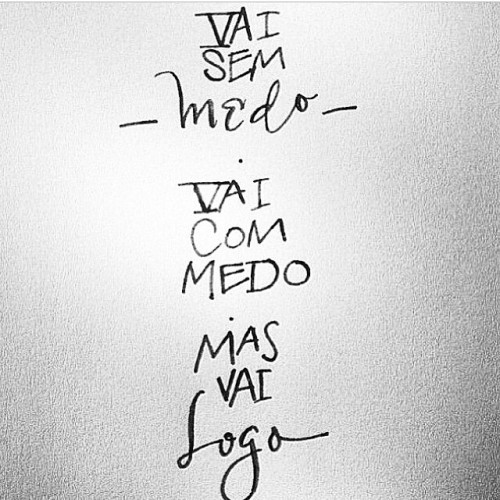 VAI
SEM
- medo -
.
VAI
COM
MEDO
.
MAS
VAI
Logo